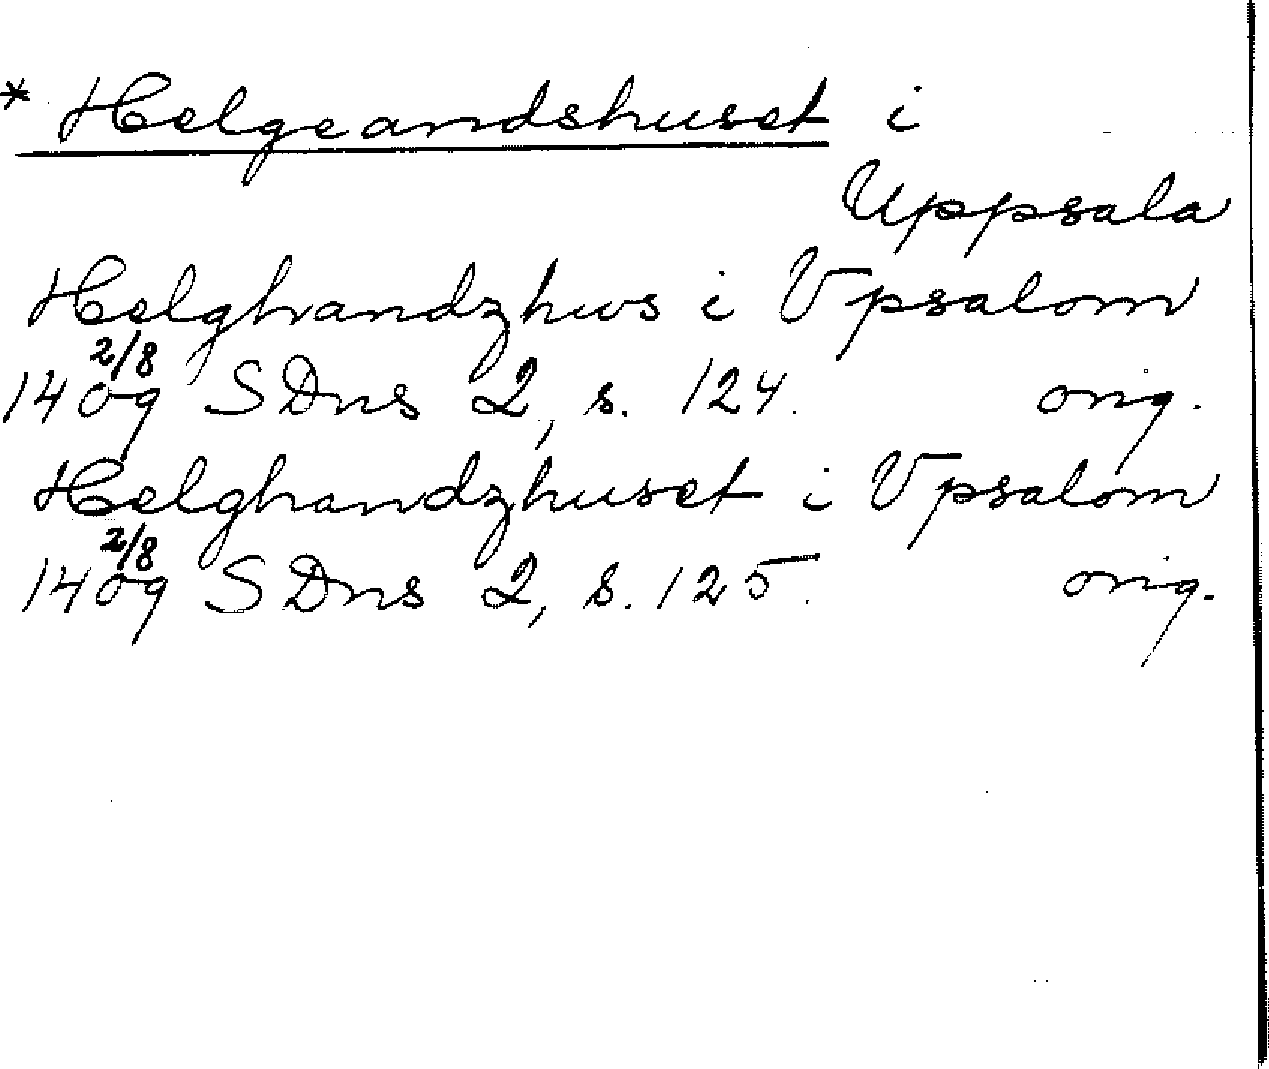 * Helgeandshuset i
Uppsala
Helghandzhws i Vpsalom
2/8
1409 SDns 2, s. 124. orig.
Helghandzhuset i Vpsalom
2/8
1409 SDns 2, s. 125. orig.